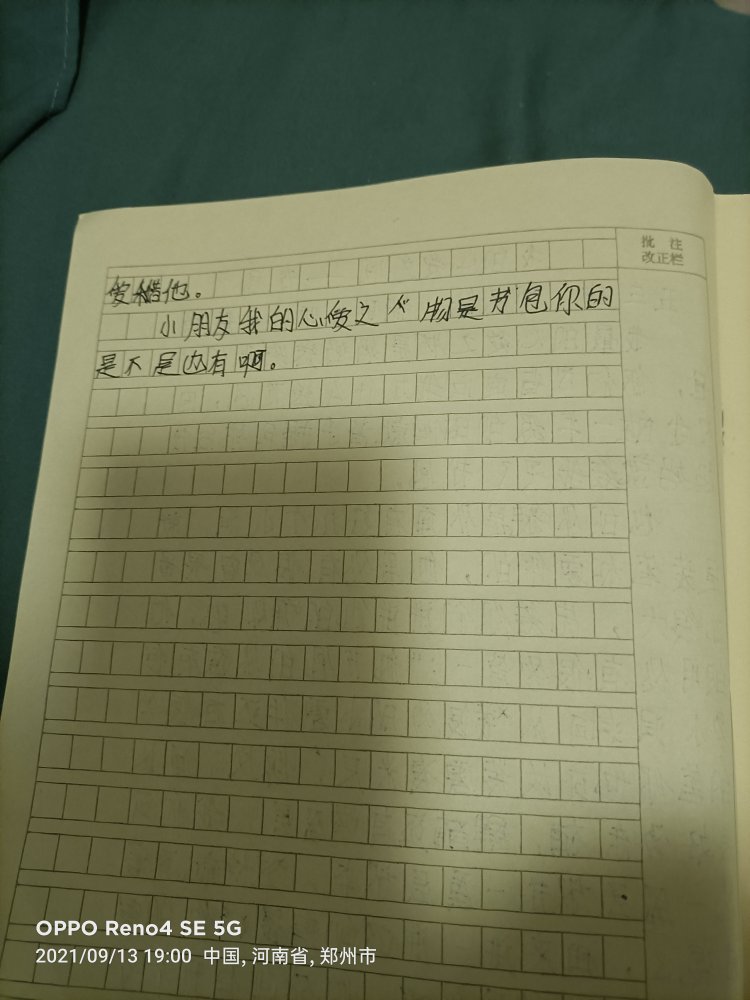 批 注
改正栏
爱惜他。
小朋友我的心爱之人物是书包你的
是不是也有啊。
OPPO Reno4 SE 5G
2021/09/13 19:00 中国, 河南省, 郑州市